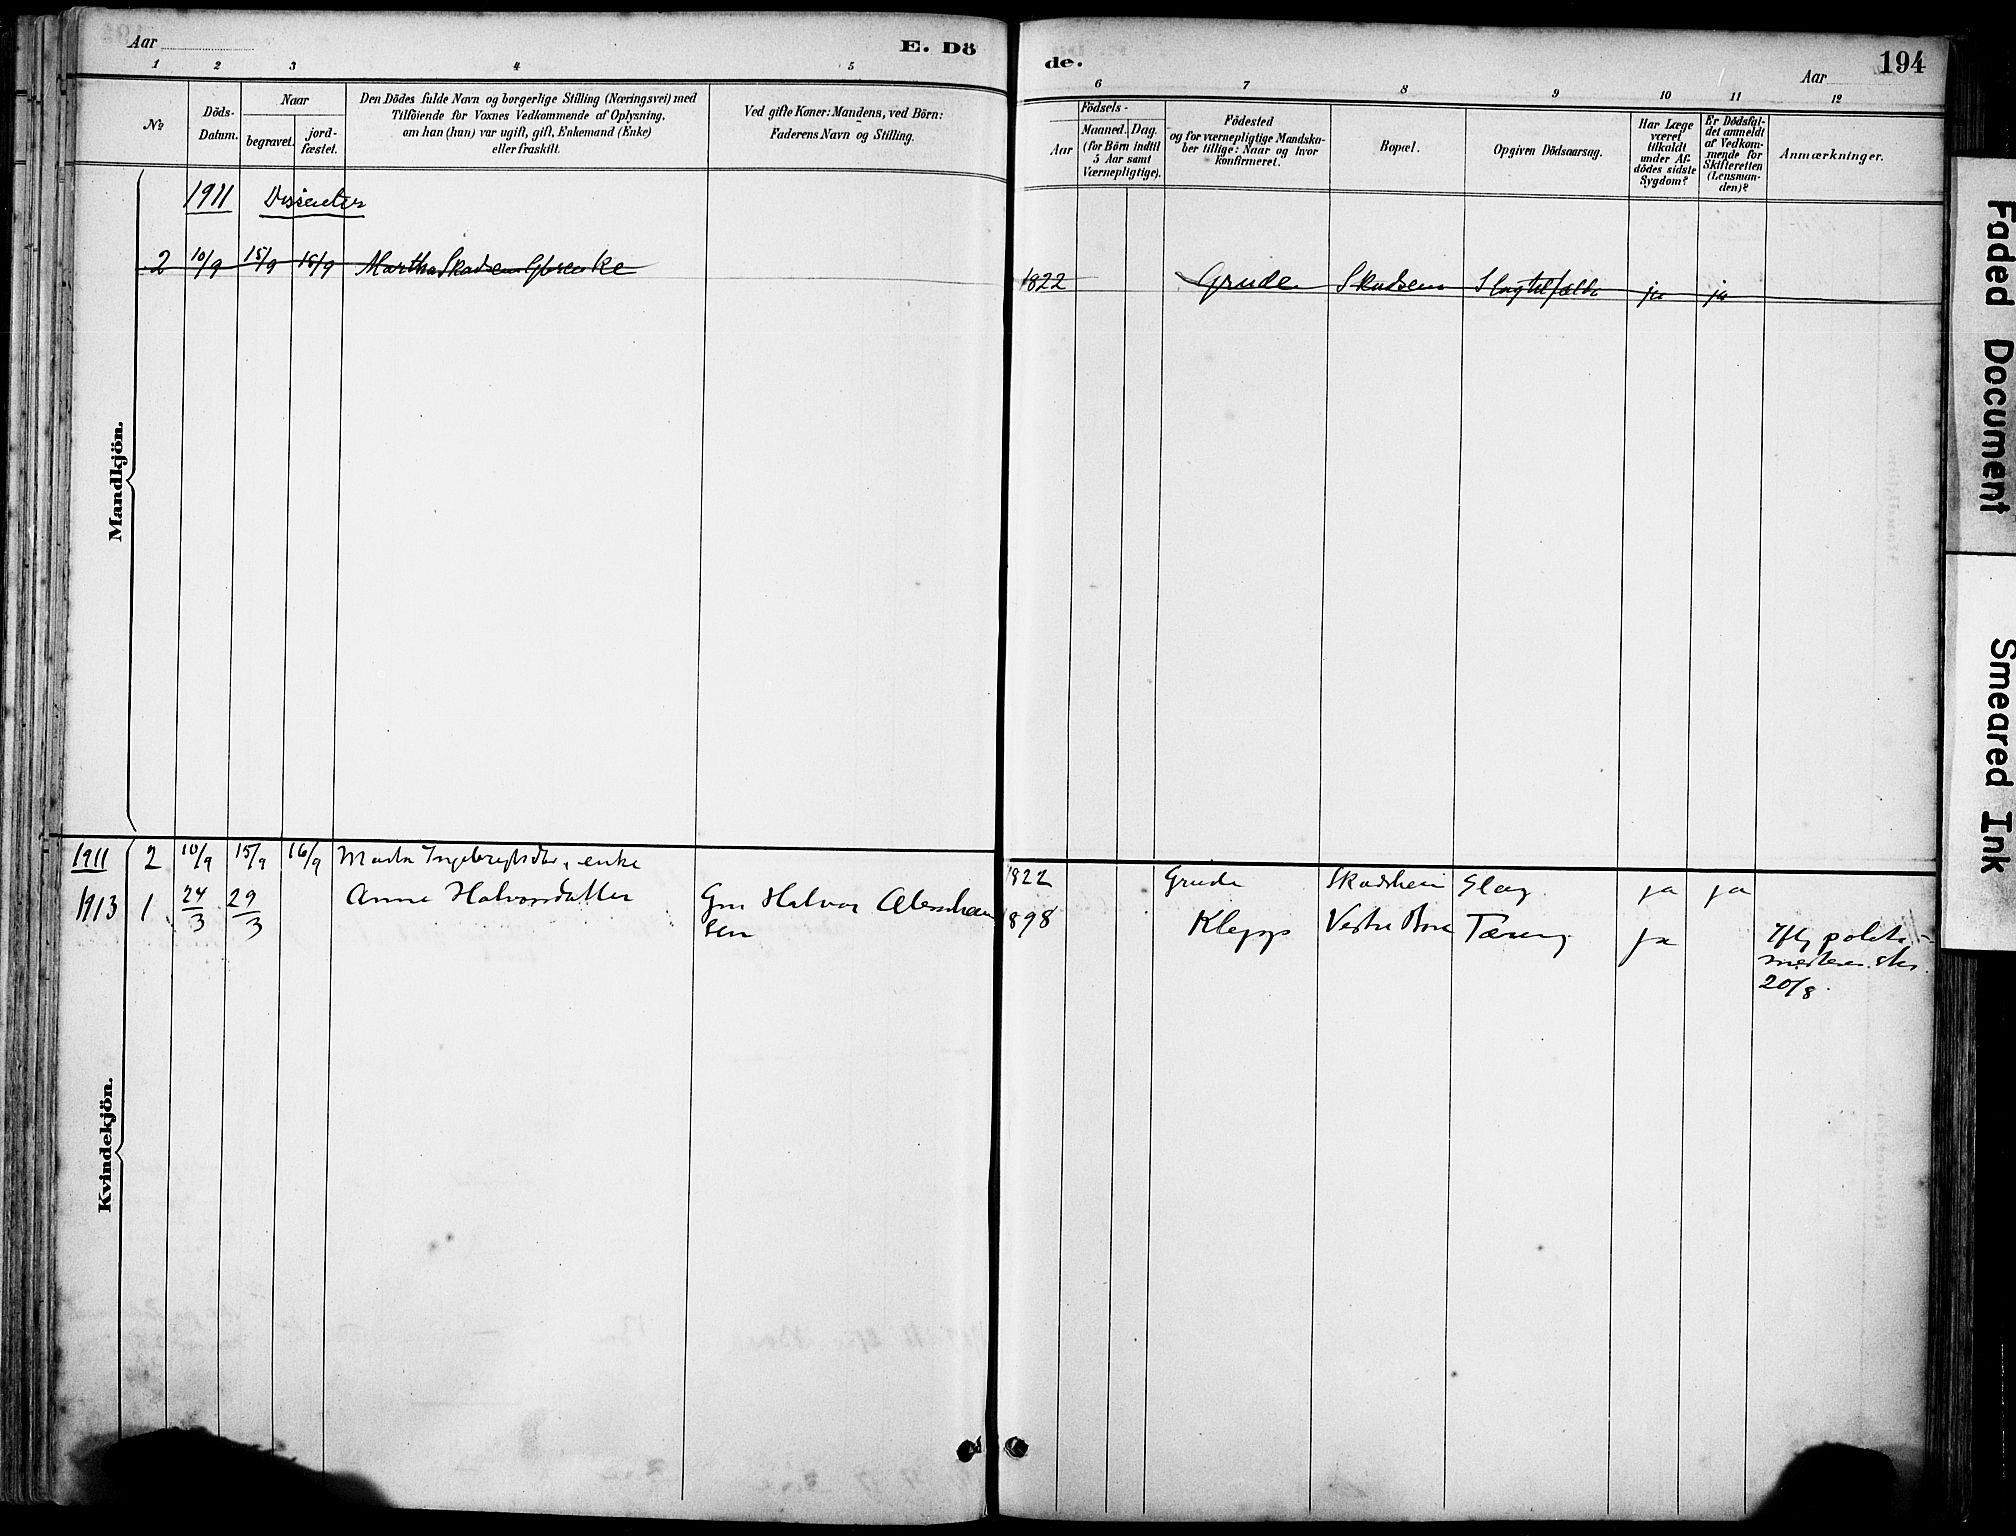 Aar
E. Dö
de.
Aar
194
1 2 3 4 5
6 7 8 9 10 11 12
№
Döds-
Datum.
Naar
begravet.
jord-
fæstet.
Den Dödes fulde Navn og borgerlige Stilling (Næringsvei) med
Tilföiende for Voxnes Vedkommende af Oplysning,
om han (hun) var ugift, gift, Enkemand (Enke)
eller fraskilt.
Ved gifte Koner: Mandens, ved Börn:
Faderens Navn og Stilling.
Födsels-
Aar
Maaned. Dag.
(for Börn indtil
5 Aar samt
Værnepligtige).
Födested
og for værnepligtige Mandska-
ber tillige: Naar og hvor
konfirmeret.
Bopæl.
Opgiven Dödsaarsag.
Har Læge
været
tilkaldt
under Af-
dödes sidste
Sygdom?
Er Dödsfal-
det anmeldt
af Vedkom-
mende for
Skifteretten
(Lensman-
den)?
Anmærkninger.
1911 Dissenter
2 10/9 15/9 16/9 Martha Skadsem 1822 Grude Skadsem Slagtilfælde ja ja
Mandkjön.
1911 2 10/9 15/9 16/9 Marta Ingebregtsdtr, enke 1822 Grude Skadsheim Slag ja ja
1913 1 24/3 29/3 Anne Halvorsdatter Gm Halvor Abraham
sen 1898 Klepp Vestre Bore Tæring ja
Iflg politi-
mesteren skr.
20/8.
Kvindekjön.
Faded Document
Smeared Ink